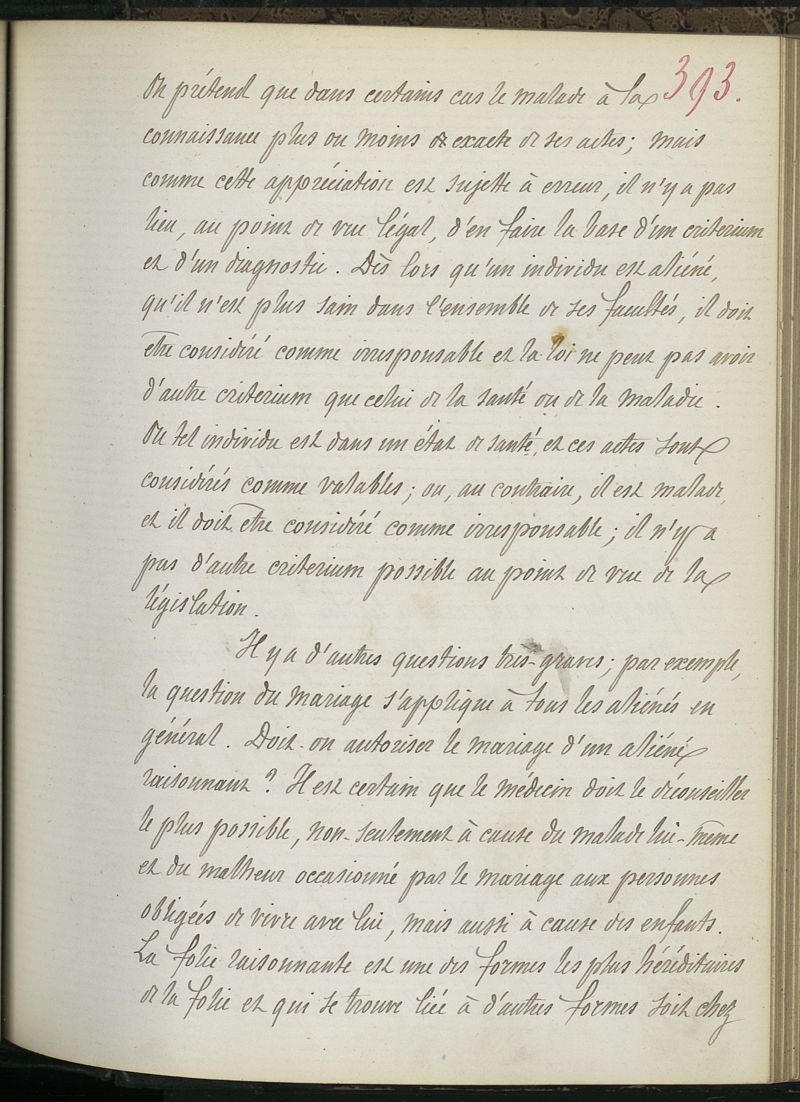 393.
On prétend que dans certains cas le malade à la
connaissance plus ou moins exacte de ses actes; mais
comme cette appréciation est sujette à erreur, il n'y a pas
lieu, au point de vue légal, d'en faire la base d'un criterium
et d'un diagnostic. Dès lors qu'un individu est aliéné,
qu'il n'est plus sain dans l'ensemble de ses facultés, il doit
être considéré comme irresponsable et la loi ne peut pas avoir
d'autre criterium que celui de la santé ou de la maladie.
Ou tel individu est dans un état de santé, et ces actes sont
considérés comme valables; ou, au contraire, il est malade,
et il doit être considéré comme irresponsable; il n'y a
pas d'autre criterium possible au point de vue de la
législation.
Il y a d'autres questions très-graves; par exemple,
la question du mariage s'applique à tous les aliénés en
général. Doit-on autoriser le mariage d'un aliéné
raisonnant? Il est certain que le médecin doit le déconseiller
le plus possible, non-seulement à cause du malade lui-même
et du malheur occasionné par le mariage aux personnes
obligées de vivre avec lui, mais aussi à cause des enfants.
La folie raisonnante est une des formes les plus héréditaires
de la folie et qui se trouve liée à d'autres formes soit chez